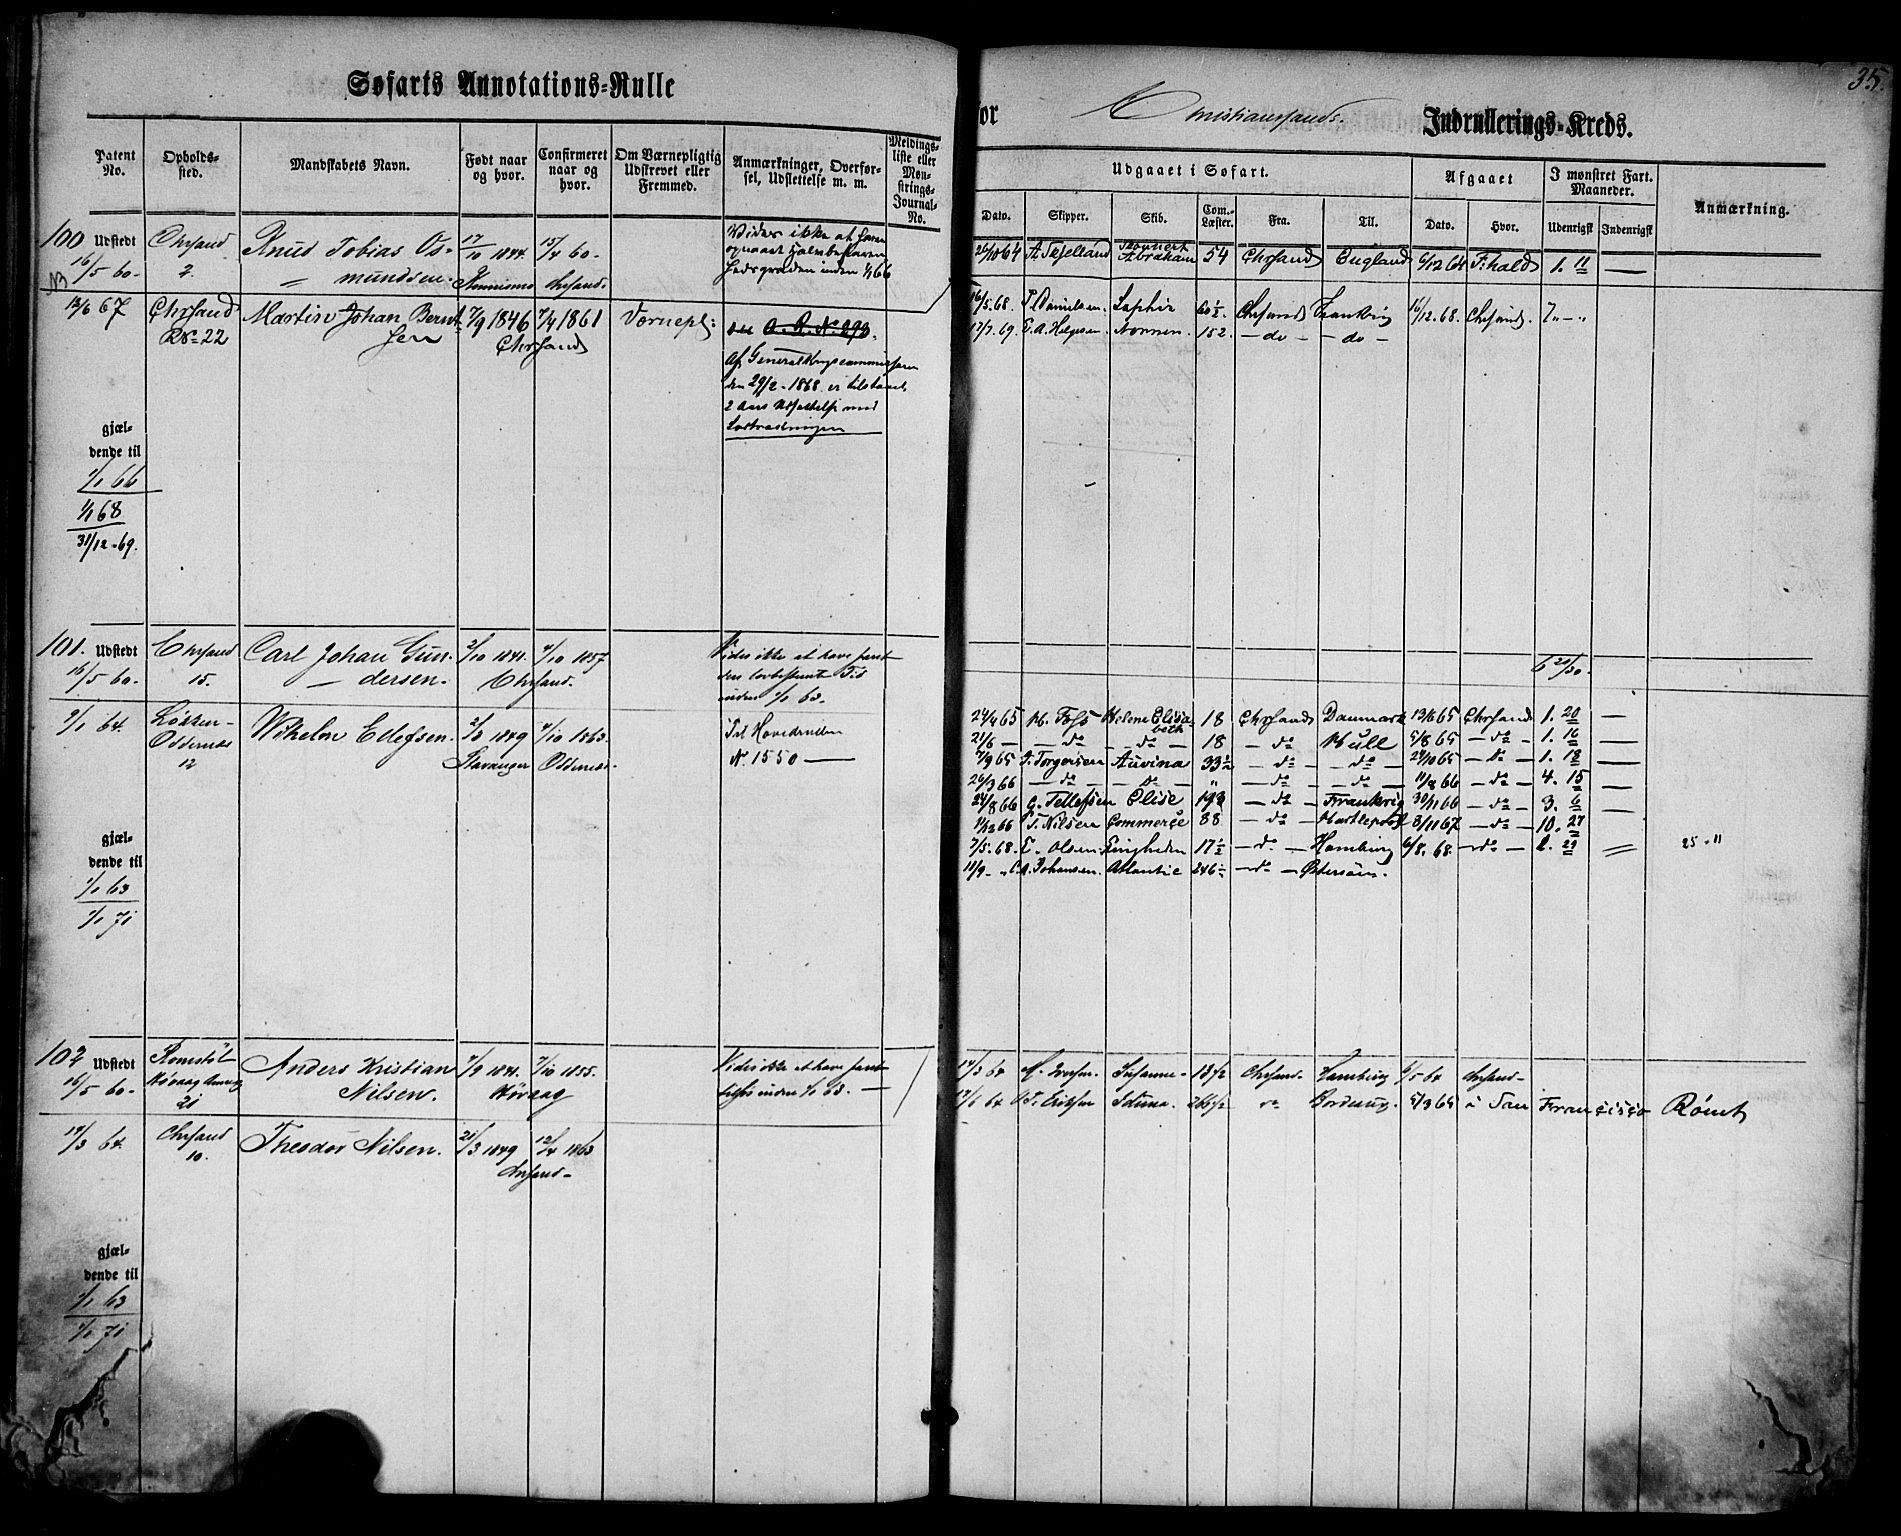 Søfarts Annotations-Rulle
for Christianssands. Indrullerings-Kreds.
35.
Patent No.
Opholdssted.
Mandskabets Navn.
Født naar og hvor.
Confirmeret naar og hvor.
Om Værnepligtig Udskrevet eller Fremmed.
Anmærkninger, Overførsel, Udslettelse m. m.
Meldingsliste eller Mønstrings-Journal-No.
Udgaaet i Søfart.
Afgaaet
I mønstret Fart. Maaneder.
Anmærkning.
Dato. Skipper. Skib. Com.-Læster. Fra. Til. Dato. Hvor. Udenrigsk Indenrigsk
100 Udstedt Chrsand Knud Tobias Os- 17/10 1844. 15/4 60.
16/5 60. 2. mundsen Chrsand.
Vides ikke at have
inden 1/1 66
26/10 64 Abraham 54 Chrsand England 6/12 64 F:hald 1. 11 —
13/6 67 Chrsand Martin Johan Bernt- 7/9 1846 7/4 1861 Værnepl:
No 22 sen Chrsand
A. R. No 290.
Af Generalkrigscommissairen
den 29/2 - 1868 er tilstaaet
2 Aars Udsættelse med
Lodtrækningen
16/5 68. Danielsen. Saphir 60½ Chrsand Frankrig 16/12. 68. Chrsand. 7 „ - „
17/7. 69. T. A. Helgesen. Nornen. 152. — do — — do —
gjæl-
dende til
1/1 66
1/1 68
31/12 - 69.
101. Udstedt Chrsand Carl Johan Gun- 2/10 1841. 4/10 1857
16/5 60. 15. — dersen. Chrsand.
Vides ikke at have faret
den lovbestemte Tid
inden 1/1 63.
6 20/30.
9/1 64. Løkken- Wilhelm Ellefsen. 2/3 1849 4/10 1863.
Oddernæs Stavanger Oddernæs.
12
Til Hovedrullen
N. 1550 —
24/4 65 H. Foss Helene Elisa- 18 Chrsand Danmark 13/6 65 Chrsand 1. 20 —
beth
21/6 — — do — do — 18 — do Hull 5/8 65 — do — 1. 16 —
7/9 65 T. Torgersen Auvina 33½ — do — — do — 24/10 65 — do — 1. 18 —
26/3 66 — do — — do — „ — do — — do — 11/8 66 — do — 4. 15 —
24/8 66 G. Tellefsen Elise 193 — do — Frankrig 30/11 66 — do — 3. 6 —
11/12 66 T. Nilsen Commerce 38 — do — Hartlepool 8/11 67 — do — 10. 27
7/5. 68. Olsen. Enigheden 17½ — do — Hamburg 6/8. 68. — do — 2. 29
25 - 11
11/9 - „ C. A. Johansen. Atlantic 246 — do — Østersøen.
gjæl-
dende til
1/1 63
1/1 71
102 Udstedt Anders Kristian 7/9 1841. 7/10 1855.
16/5 60. Høvaag Nilsen. Høvaag
21
Vides ikke at have faret
inden 1/1 63. —
14/3 64 Susanne - 13½ Chrsand. Hamburg 6/5 64 Chrsand -
17/6 64 Iduna. 266½ do Bordeaux. 5/3 65 i San Francisco Rømt
14/3 64. Chrsand Theodor Nilsen. 21/3 1849 12/4 1863
10. Chrsand -
gjæl-
dende til
1/1 63
1/1 71